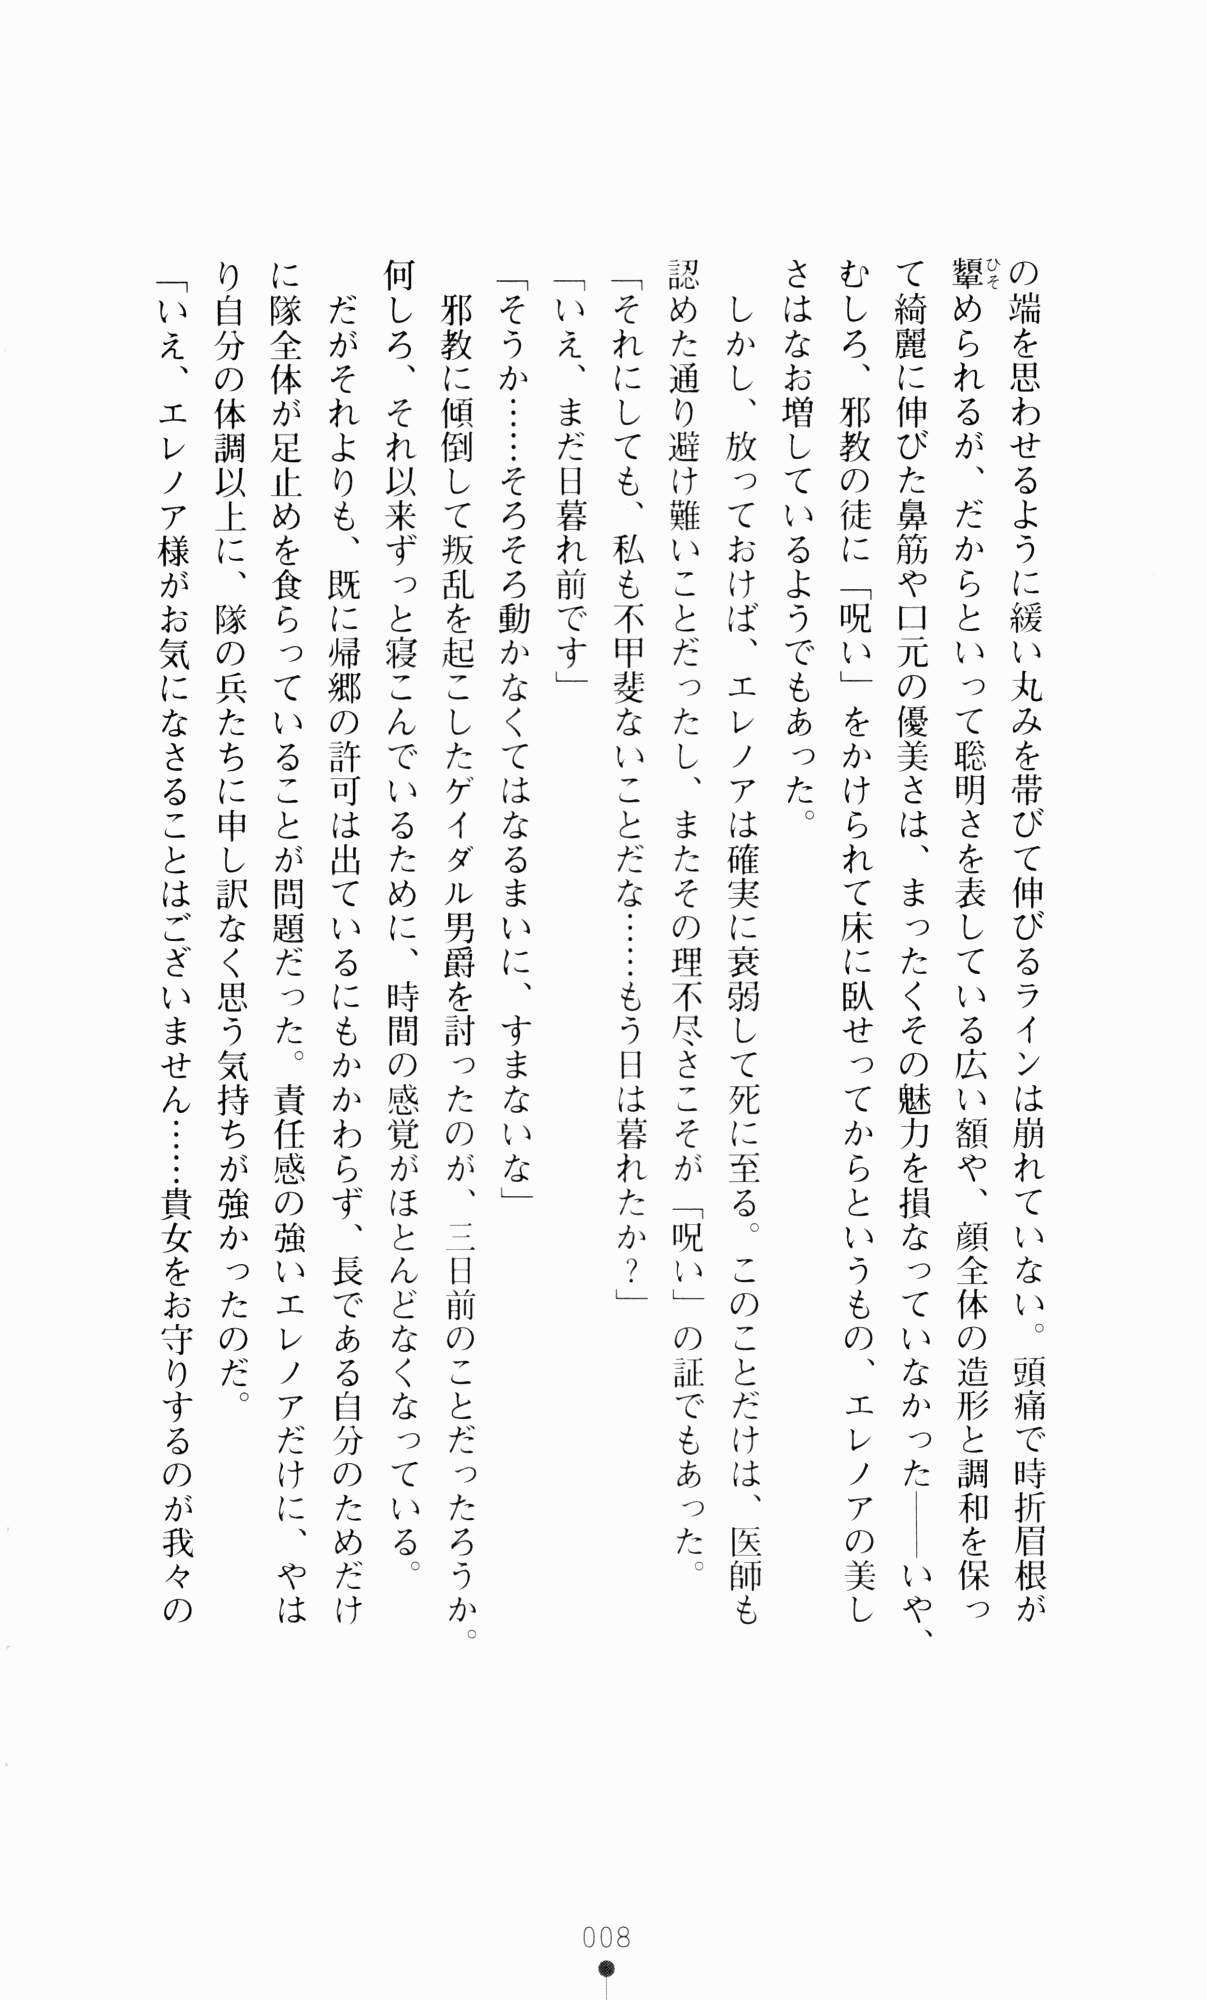 の端を思わせるように緩い丸みを帯びて伸びるラインは崩れていない。頭痛で時折眉根が
顰められるが、だからといって聡明さを表している広い額や、顔全体の造形と調和を保っ
て綺麗に伸びた鼻筋や口元の優美さは、まったくその魅力を損なっていなかった――いや、
むしろ、邪教の徒に「呪い」をかけられて床に臥せってからというもの、エレノアの美し
さはなお増しているようでもあった。
しかし、放っておけば、エレノアは確実に衰弱して死に至る。このことだけは、医師も
認めた通り避け難いことだったし、またその理不尽さこそが「呪い」の証でもあった。
「それにしても、私も不甲斐ないことだな……もう日は暮れたか？」
「いえ、まだ日暮れ前です」
「そうか……そろそろ動かなくてはなるまいに、すまないな」
邪教に傾倒して叛乱を起こしたゲイダル男爵を討ったのが、三日前のことだったろうか。
何しろ、それ以来ずっと寝こんでいるために、時間の感覚がほとんどなくなっている。
だがそれよりも、既に帰郷の許可は出ているにもかかわらず、長である自分のためだけ
に隊全体が足止めを食らっていることが問題だった。責任感の強いエレノアだけに、やは
り自分の体調以上に、隊の兵たちに申し訳なく思う気持ちが強かったのだ。
「いえ、エレノア様がお気になさることはございません……貴女をお守りするのが我々の
ひそ
008